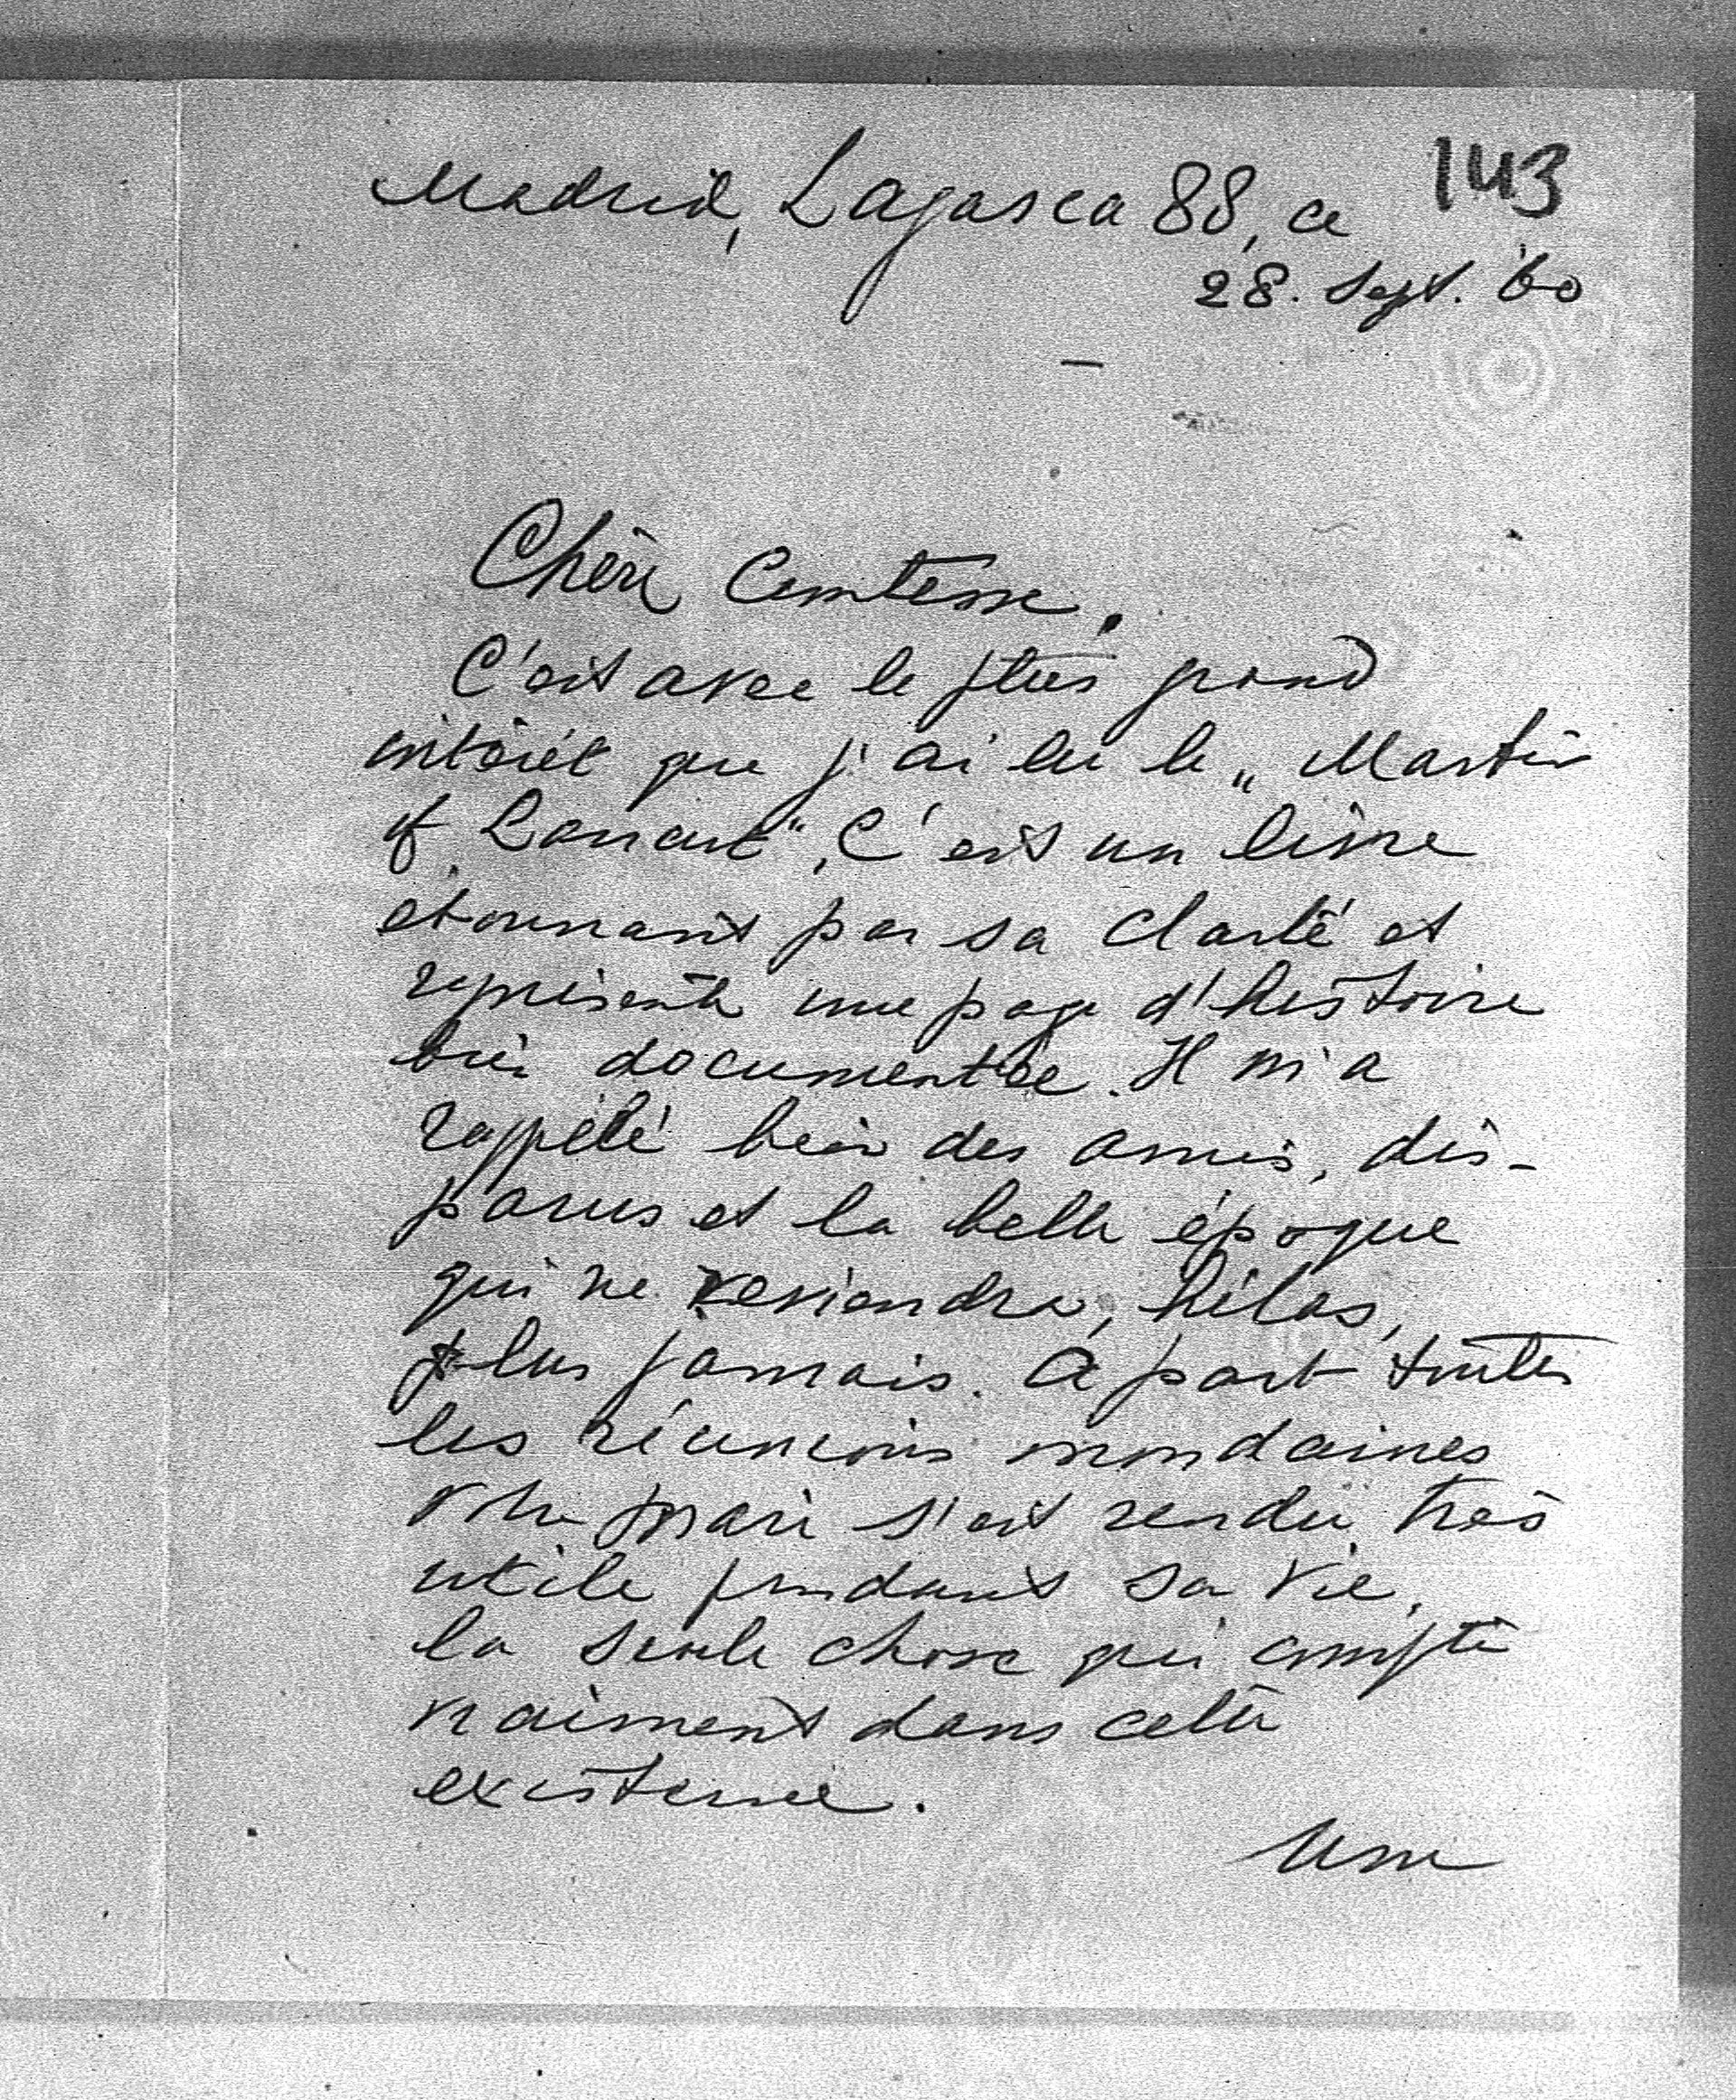 143
Madrid, Lagasca 88, ce
28. Sept. 60
Chère Comtesse,
C'est avec le plus grand
intérêt que j'ai lu le „Master
of Lancut". C'est un livre
étonnant par sa clarté et
représente une page d'histoire
très documentée. Il m'a
rappelé bien des amis, dis-
parus et la belle époque
qui ne reviendra, hélas,
plus jamais. A part toutes
les réunions mondaines
votre mari s'est rendu très
utile pendant sa vie,
la seule chose qui compte
vraiment dans cette
existence.